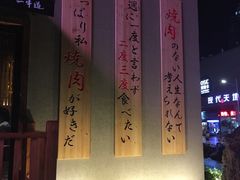 焼肉のない人生なんて
考えられない
週に一度と言わず
二度三度食べたい
っぱり私
焼肉が好きだ
現代天地